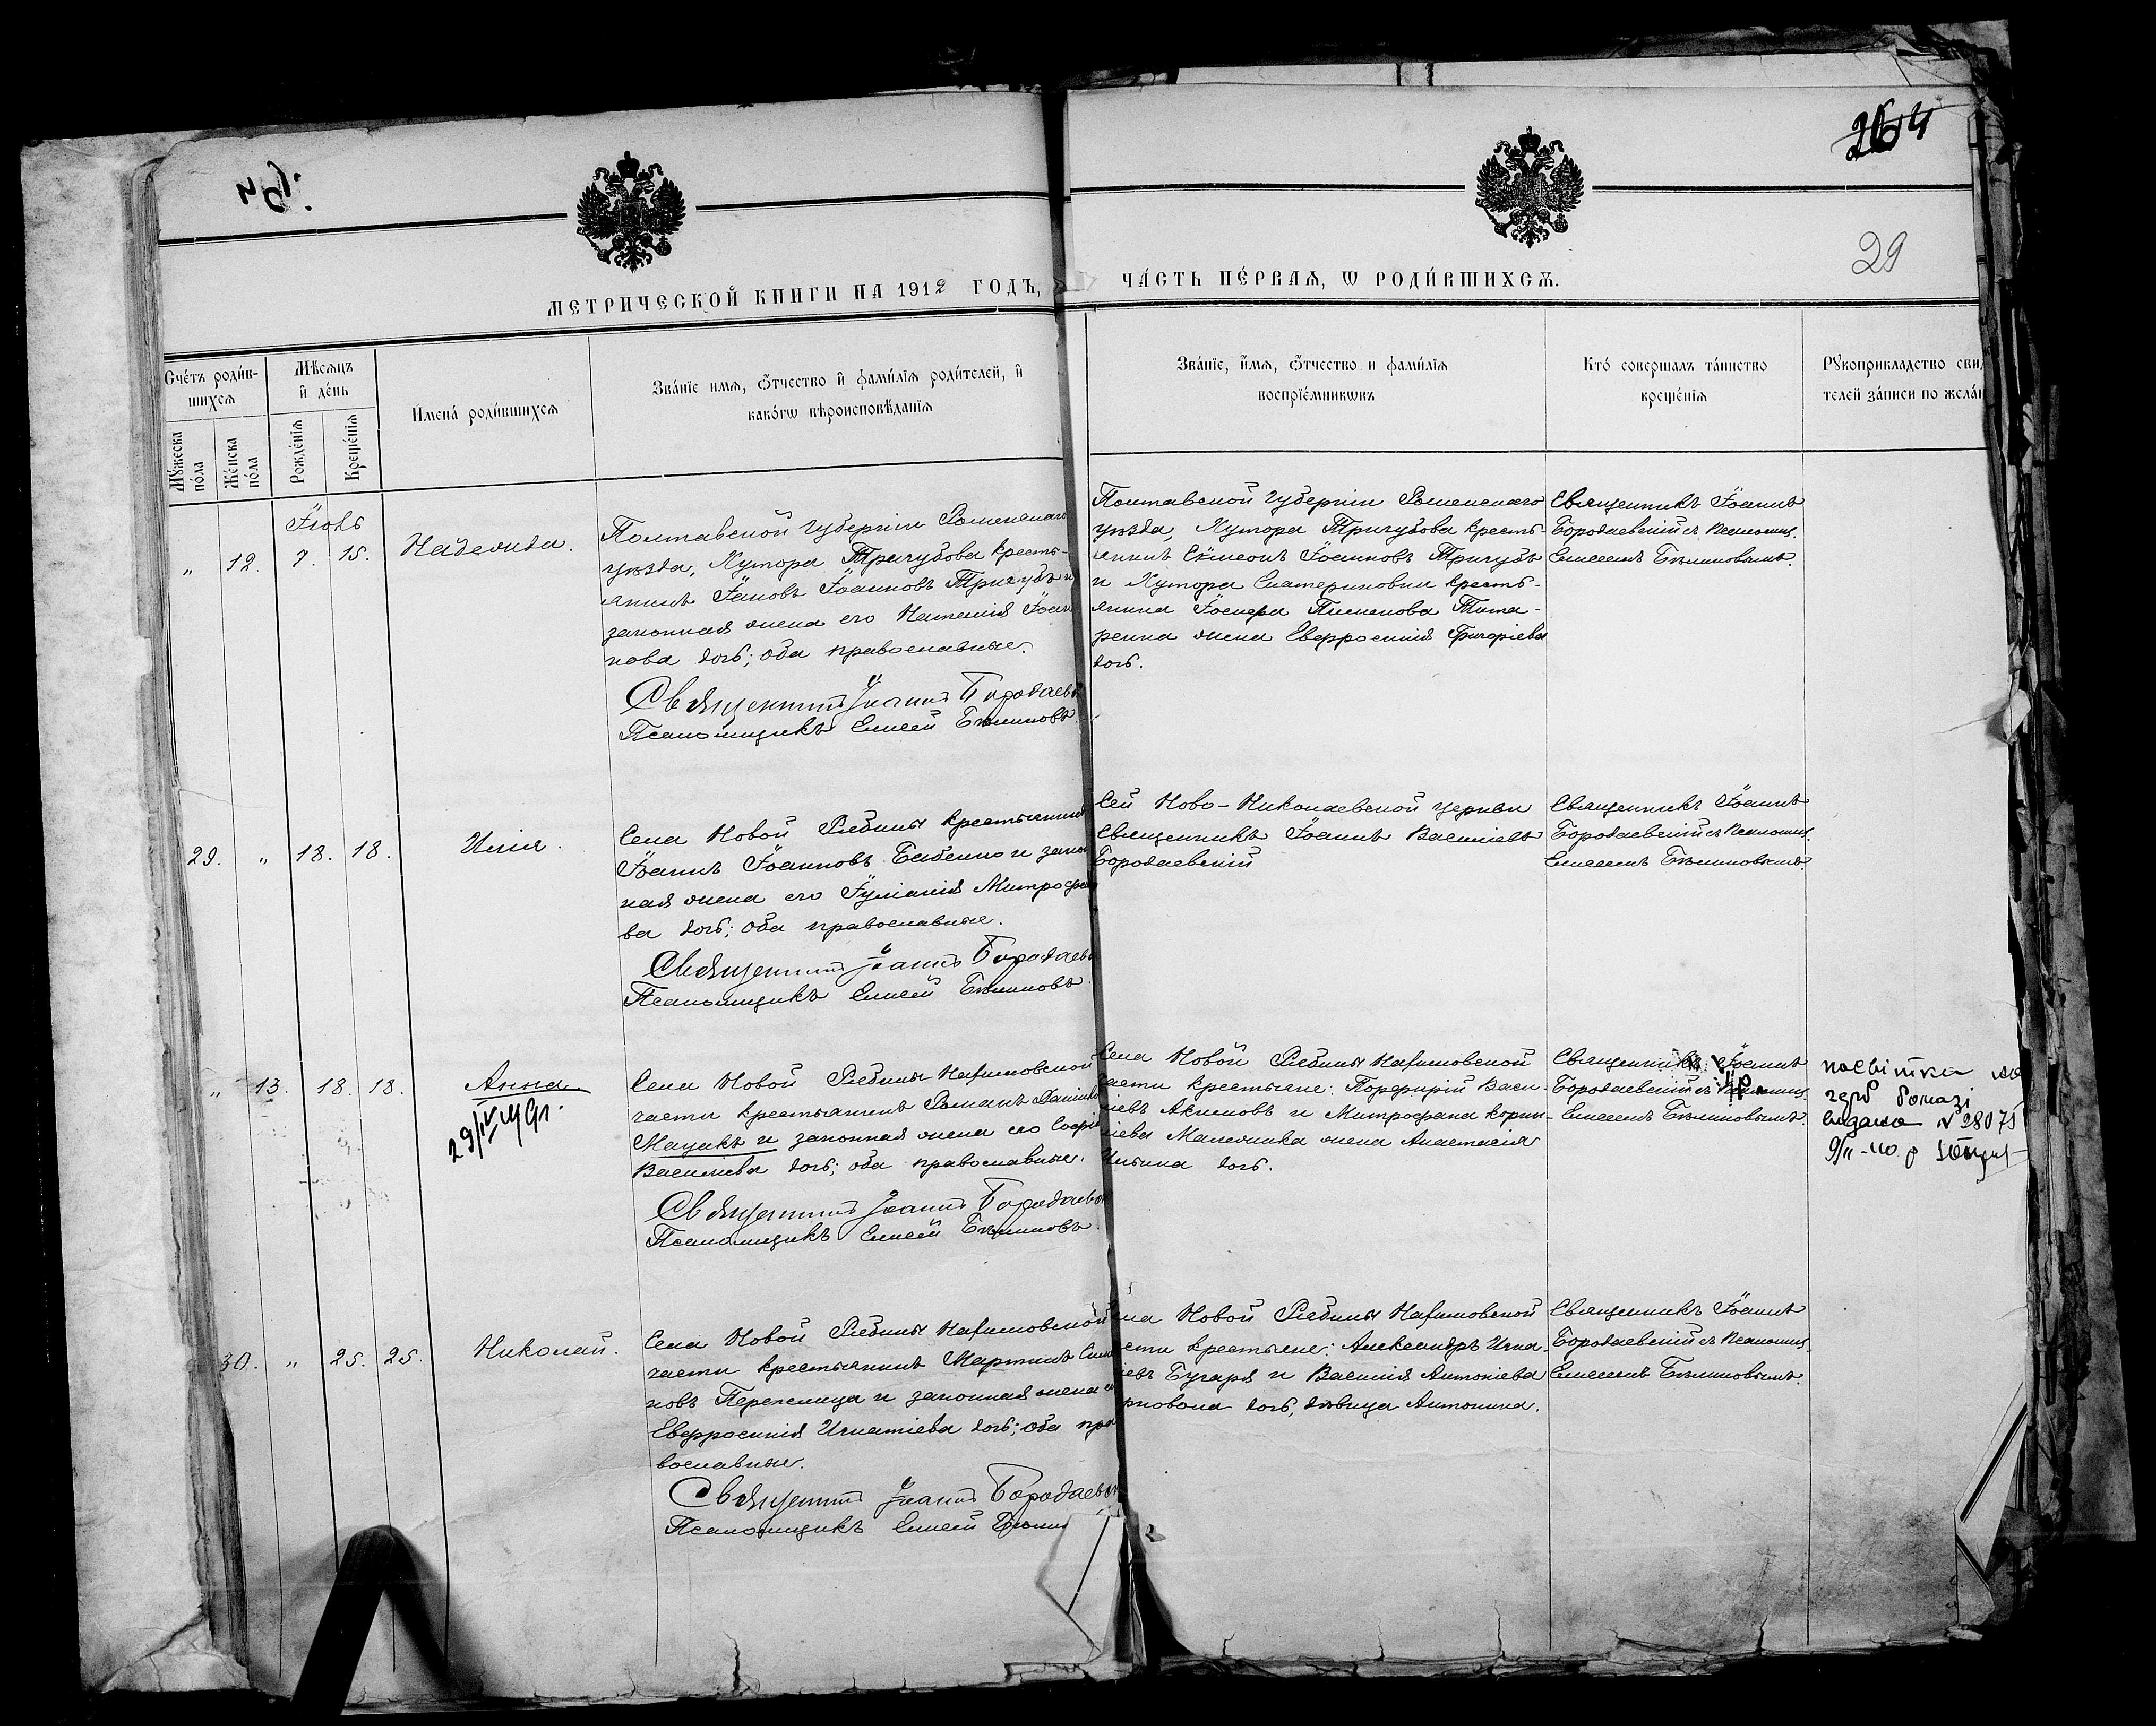 264
29
МЕТРИЧЕСКОЙ КНИГИ НА 1912 ГОДЪ,
ЧА́СТЬ ПЕ́РВАЯ, Ѡ РОДИ́ВШИХСѦ.
Сче́тъ роди́в-
шихсѧ
Мꙋ́жеска по́ла
Же́нска по́ла
Мѣ́сѧцъ
и҆ де́нь
Рожде́нїѧ
Креще́нїѧ
И҆мена́ роди́вшихсѧ
Зва́нїе имѧ, ѻ҆́тчество и҆ фами́лїѧ роди́телей, и҆
како́гѡ вѣроисповѣ́данїѧ
Зва́нїе, и҆́мѧ, ѻ҆́тчество и фами́лїѧ
воспрїе́мникѡвъ
Кто́ соверша́лъ та́инство
креще́нїѧ
Рꙋкоприкладство свид
телей за́писи по жела́н
Іюль
„ 12. 7. 15. Надежда.
Полтавской губерніи Роменскаго
уѣзда, Хутора Тригубова кресть-
янинъ Іаковъ Іоанновъ Тригубъ и
законная жена его Наталія Іоан
нова дочь; оба православные.
Священникъ Іоаннъ Бородаевс
Псаломщикъ Елисей Бѣлиновъ
Полтавской губерніи Роменскаго
уѣзда, Хутора Тригубова кресть-
янинъ Сѵмеонъ Іоанновъ Тригубъ
и Хутора Екатериновки кресть-
янина Іосифа Пименова Тита-
ренка жена Евфросинія Григоріева
дочь.
Священникъ Іоаннъ
Бородаевскій съ Псаломщ.
Елисеемъ Бѣлиновымъ.
29. „ 18. 18. Илія.
Села Новой Рябины крестьянинъ
Іоаннъ Іоанновъ Бабенко и закон
ная жена его Іуліанія Митрофан
ва дочь; оба православные.
Священникъ Іоаннъ Бородаевс
Псаломщикъ Елисей Бѣлиновъ
Сей Ново-Николаевской церкви
Священникъ Іоаннъ Васильевъ
Бородаевскій
Священникъ Іоаннъ
Бородаевскій съ Псаломщ.
Елисеемъ Бѣлиновымъ.
„ 13. 18. 18. Анна.
29/IV
Села Новой Рябины Нахимовской
части крестьянинъ Романъ Даніил
Мацакъ и законная жена его Софія
Василіева дочь; оба православные.
Священникъ Іоаннъ Бородаевс
Псаломщикъ Елисей Бѣлиновъ
Села Новой Рябины Нахимовской
части крестьяне: Порфирій Васи-
ліевъ Акимовъ и Митрофана Корни-
ліева жена Анастасія
Ильина дочь.
Священникъ Іоаннъ
Бородаевскій съ Псаломщ.
Елисеемъ Бѣлиновымъ.
посвітка
герб бомазі
видана № 28075
30. „ 25. 25. Николай.
Села Новой Рябины Нахимовской
части крестьянинъ Мартинъ Сим
новъ Перепелица и законная жена е
Евфросинія Игнатіева дочь; оба пра
вославные.
Священникъ Іоаннъ Бородаевс
Псаломщикъ Елисей Бѣлин
ела Новой Рябины Нахимовской
асти крестьяне: Александръ Игна-
іевъ Бугаря и Василія Антоніева
дочь, дѣвица Антонина.
Священникъ Іоаннъ
Бородаевскій съ Псаломщ.
Елисеемъ Бѣлиновымъ.